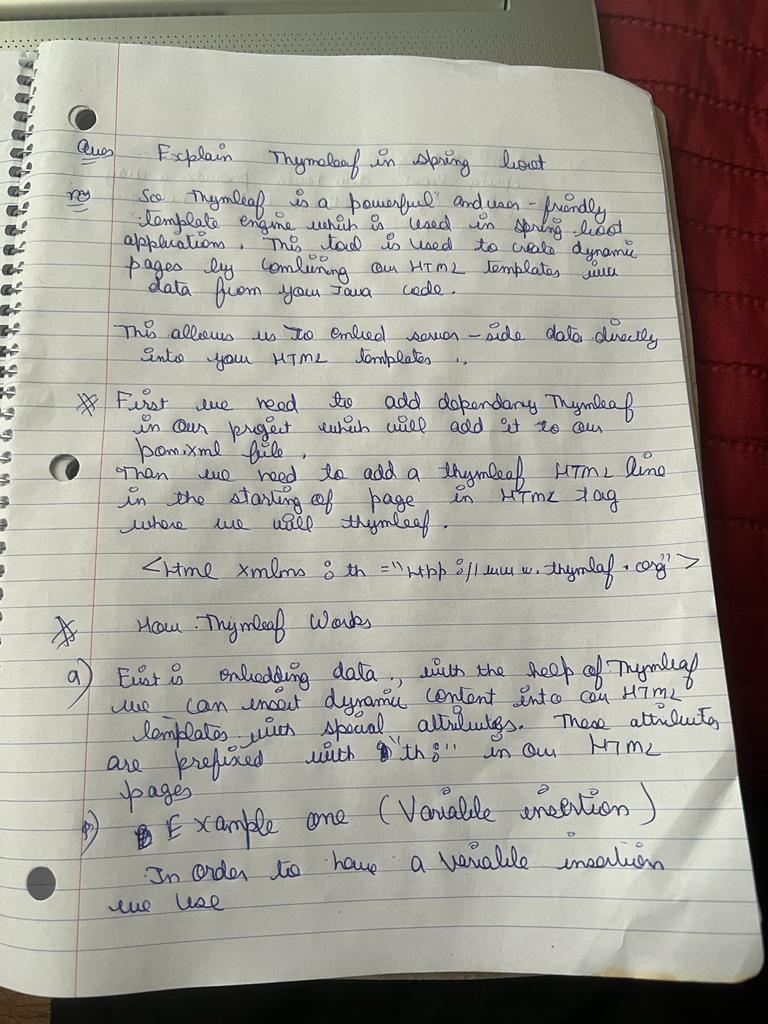 Ques Explain Thymeleaf in spring boot
So Thymleaf is a powerful and user-friendly
template engine which is used in spring boot
applications. This tool is used to create dynamic
pages by combining our HTML templates with
data from your Java code.
This allows us to embed server-side data directly
into your HTML templates ..
First we need to add dependany Thymleaf
in our project which will add it to our
pom.xml file.
Then we need to add a thymleaf HTML line
in the starting of page in HTML tag
where we will thymleaf.
<Html xmlns : th ="Htpp ://www.thymlaf.org">
How Thymleaf Works
a) First is embedding data, with the help of Thymleaf
we can insert dynamic content into our HTML
templates with special attributes. These attributes
are prefixed with "th:" in our HTML
pages
b) Example one (Variable insertion)
In order to have a variable insertion
we use